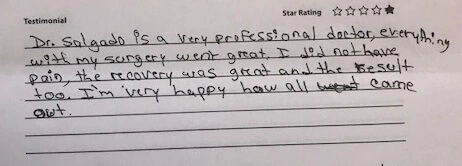 Testimonial Star Rating ☆☆☆☆★
Dr. Salgado is a very professional doctor, everything
with my surgery went great, I did not have
pain, the recovery was great and the result
too. I'm very happy how all went came
out.